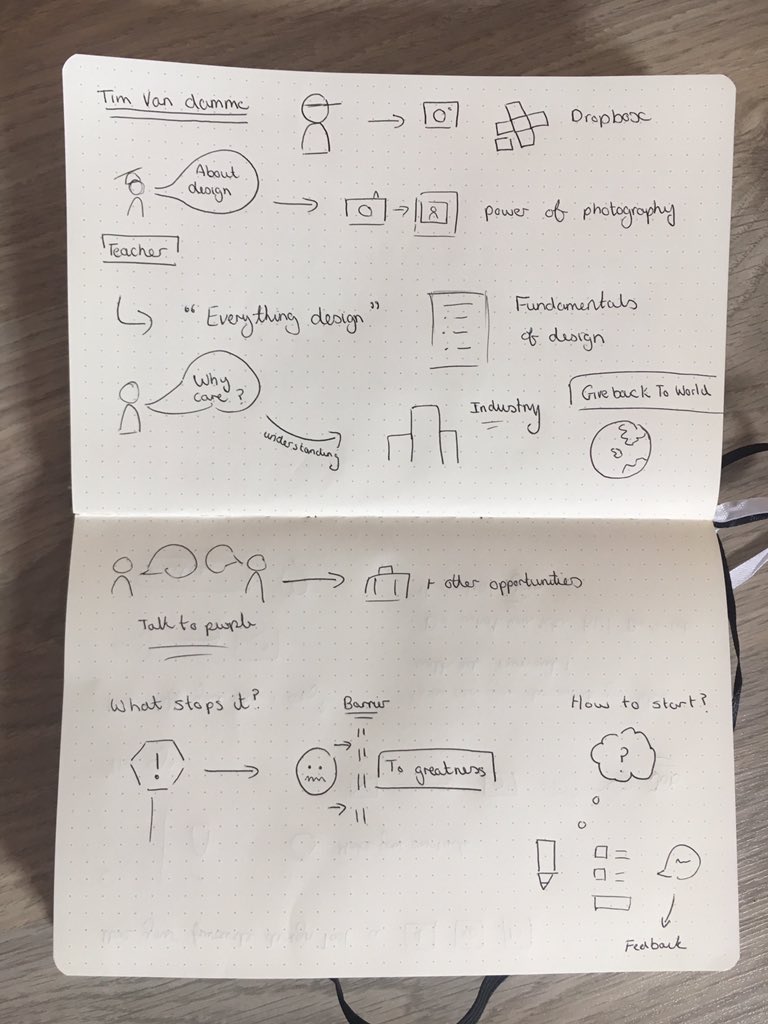 Tim Van damme
Dropbox
About
design
power of photography
Teacher
"Everything design"
Fundamentals
of design
Why
care?
understanding
Industry
Give back To World
+ other opportunities
Talk to people
What stops it?
Barrier
How to start?
!
To greatness
?
Feedback